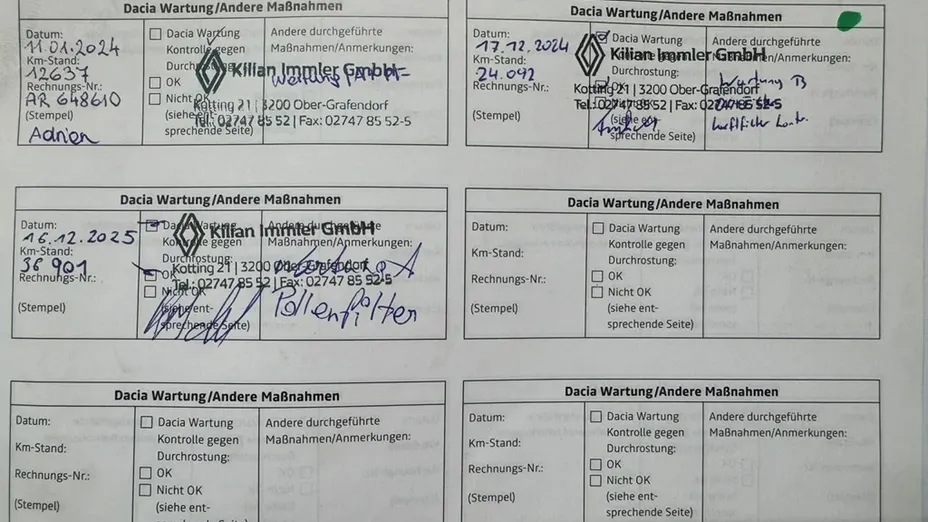 Dacia Wartung/Andere Maßnahmen
Datum:
11.01.2024
Km-Stand:
12637
Rechnungs-Nr.:
AR 648610
(Stempel)
Adrien
Dacia Wartung
Kontrolle gegen
Durchrostung:
OK
Nicht OK
(siehe ent-
sprechende Seite)
Andere durchgeführte
Maßnahmen/Anmerkungen:
Wartung A
Kilian Immler GmbH
Kotting 21 | 3200 Ober-Grafendorf
Tel.: 02747 85 52 | Fax: 02747 85 52-5
Dacia Wartung/Andere Maßnahmen
Datum:
17.12.2024
Km-Stand:
24.092
Rechnungs-Nr.:
(Stempel)
Dacia Wartung
Kontrolle gegen
Durchrostung:
OK
Nicht OK
(siehe ent-
sprechende Seite)
Andere durchgeführte
Maßnahmen/Anmerkungen:
Wartung B
Luftfilter
Kilian Immler GmbH
Kotting 21 | 3200 Ober-Grafendorf
Tel.: 02747 85 52 | Fax: 02747 85 52-5
Dacia Wartung/Andere Maßnahmen
Datum:
16.12.2025
Km-Stand:
36 901
Rechnungs-Nr.:
(Stempel)
Dacia Wartung
Kontrolle gegen
Durchrostung:
OK
Nicht OK
(siehe ent-
sprechende Seite)
Andere durchgeführte
Maßnahmen/Anmerkungen:
Wartung A
Pollenfilter
Kilian Immler GmbH
Kotting 21 | 3200 Ober-Grafendorf
Tel.: 02747 85 52 | Fax: 02747 85 52-5
Dacia Wartung/Andere Maßnahmen
Datum:
Km-Stand:
Rechnungs-Nr.:
(Stempel)
Dacia Wartung
Kontrolle gegen
Durchrostung:
OK
Nicht OK
(siehe ent-
sprechende Seite)
Andere durchgeführte
Maßnahmen/Anmerkungen:
Dacia Wartung/Andere Maßnahmen
Datum:
Km-Stand:
Rechnungs-Nr.:
(Stempel)
Dacia Wartung
Kontrolle gegen
Durchrostung:
OK
Nicht OK
(siehe ent-
sprechende Seite)
Andere durchgeführte
Maßnahmen/Anmerkungen:
Dacia Wartung/Andere Maßnahmen
Datum:
Km-Stand:
Rechnungs-Nr.:
(Stempel)
Dacia Wartung
Kontrolle gegen
Durchrostung:
OK
Nicht OK
(siehe ent-
sprechende Seite)
Andere durchgeführte
Maßnahmen/Anmerkungen: